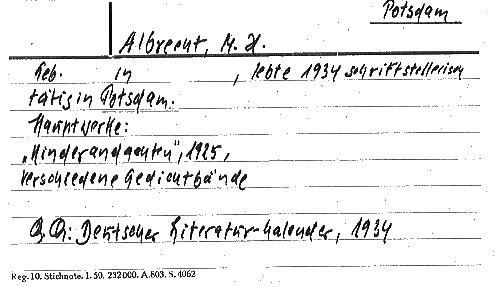 Potsdam
Albrecht, M. H.
Geb. in , lebte 1934 schriftstellerisch
tätig in Potsdam.
Hauptwerke:
1925,
Verschiedene Gedichtbände
QQ: Deutscher Literatur-Kalender, 1934
Reg. 10. Stichnote. 1. 50. 232000. A.803. S. 4062